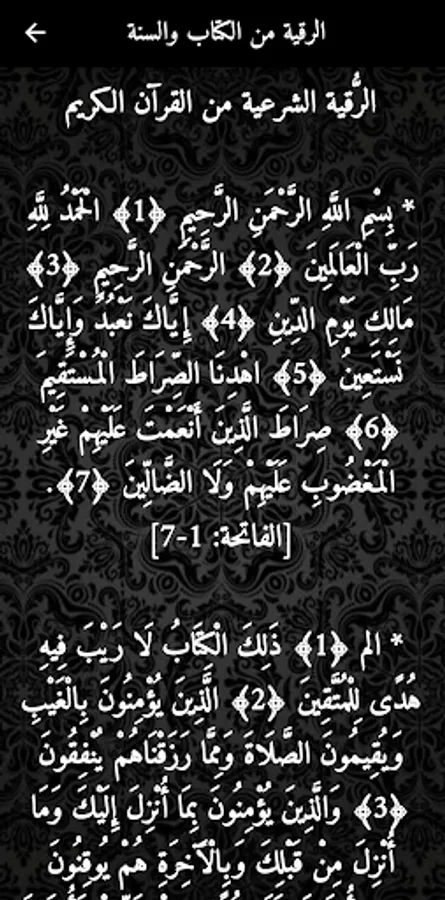 الرقية من الكتاب والسنة
الرُّقية الشرعية من القرآن الكريم
* بِسْمِ اللَّهِ الرَّحْمَنِ الرَّحِيمِ ﴿1﴾ الْحَمْدُ لِلَّهِ
رَبِّ الْعَالَمِينَ ﴿2﴾ الرَّحْمَنِ الرَّحِيمِ ﴿3﴾
مَالِكِ يَوْمِ الدِّينِ ﴿4﴾ إِيَّاكَ نَعْبُدُ وَإِيَّاكَ
نَسْتَعِينُ ﴿5﴾ اهْدِنَا الصِّرَاطَ الْمُسْتَقِيمَ
﴿6﴾ صِرَاطَ الَّذِينَ أَنْعَمْتَ عَلَيْهِمْ غَيْرِ
الْمَغْضُوبِ عَلَيْهِمْ وَلَا الضَّالِّينَ ﴿7﴾.
[الفاتحة: 1-7]
* الم ﴿1﴾ ذَلِكَ الْكِتَابُ لَا رَيْبَ فِيهِ
هُدًى لِلْمُتَّقِينَ ﴿2﴾ الَّذِينَ يُؤْمِنُونَ بِالْغَيْبِ
وَيُقِيمُونَ الصَّلَاةَ وَمِمَّا رَزَقْنَاهُمْ يُنْفِقُونَ
﴿3﴾ وَالَّذِينَ يُؤْمِنُونَ بِمَا أُنْزِلَ إِلَيْكَ وَمَا
أُنْزِلَ مِنْ قَبْلِكَ وَبِالْآَخِرَةِ هُمْ يُوقِنُونَ